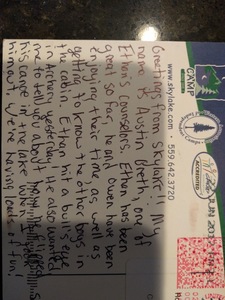 CAMP
www.skylake.com · 559.642.3720
ACCREDITED
Greetings from Skylake!! My
name is Austin Greth, one of
Ethan's counselors. Ethan has been
great so far, he and Owen have been
enjoying their time as well as
getting to know the other boys in
the cabin. Ethan hit a bull's eye
in Archery yesterday. He also wanted
me to tell you about
his canoe in the lake when I
him out. We're having loads of fun!